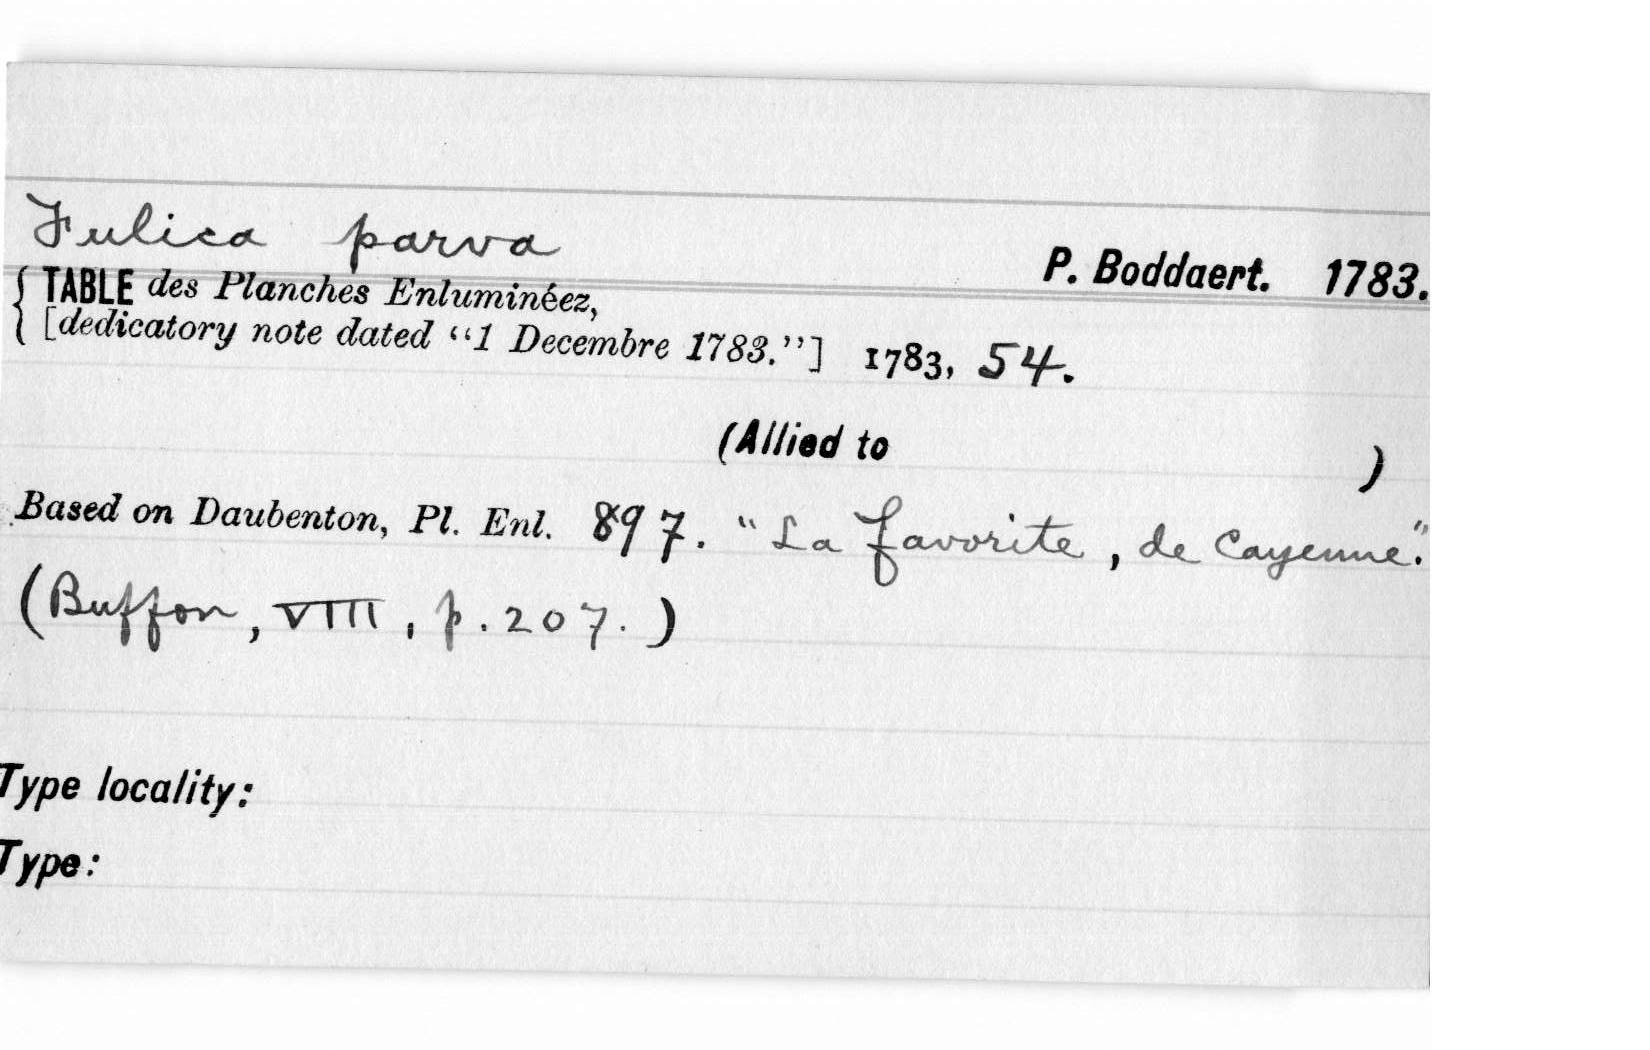 Fulica parva
P. Boddaert. 1783.
{ TABLE des Planches Enluminéez,
[dedicatory note dated “1 Decembre 1783.”] 1783, 54.
(Allied to )
Based on Daubenton, Pl. Enl. 897. “La favorite, de Cayenne.”
(Buffon, VIII, p. 207.)
Type locality:
Type: